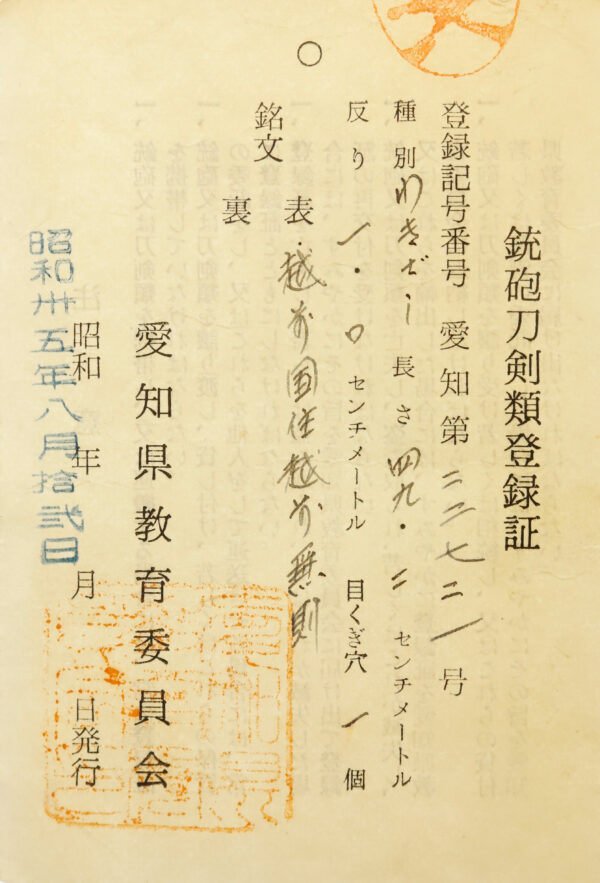 銃砲刀剣類登録証
登録記号番号 愛知第 二二七二一 号
種別 わきざし 長さ 四九・二 センチメートル
反り 一・〇 センチメートル 目くぎ穴 一 個
銘文 表・越前国住越前兼則
裏
愛知県教育委員会
昭和 年 月 日発行
昭和卅五年八月拾弐日